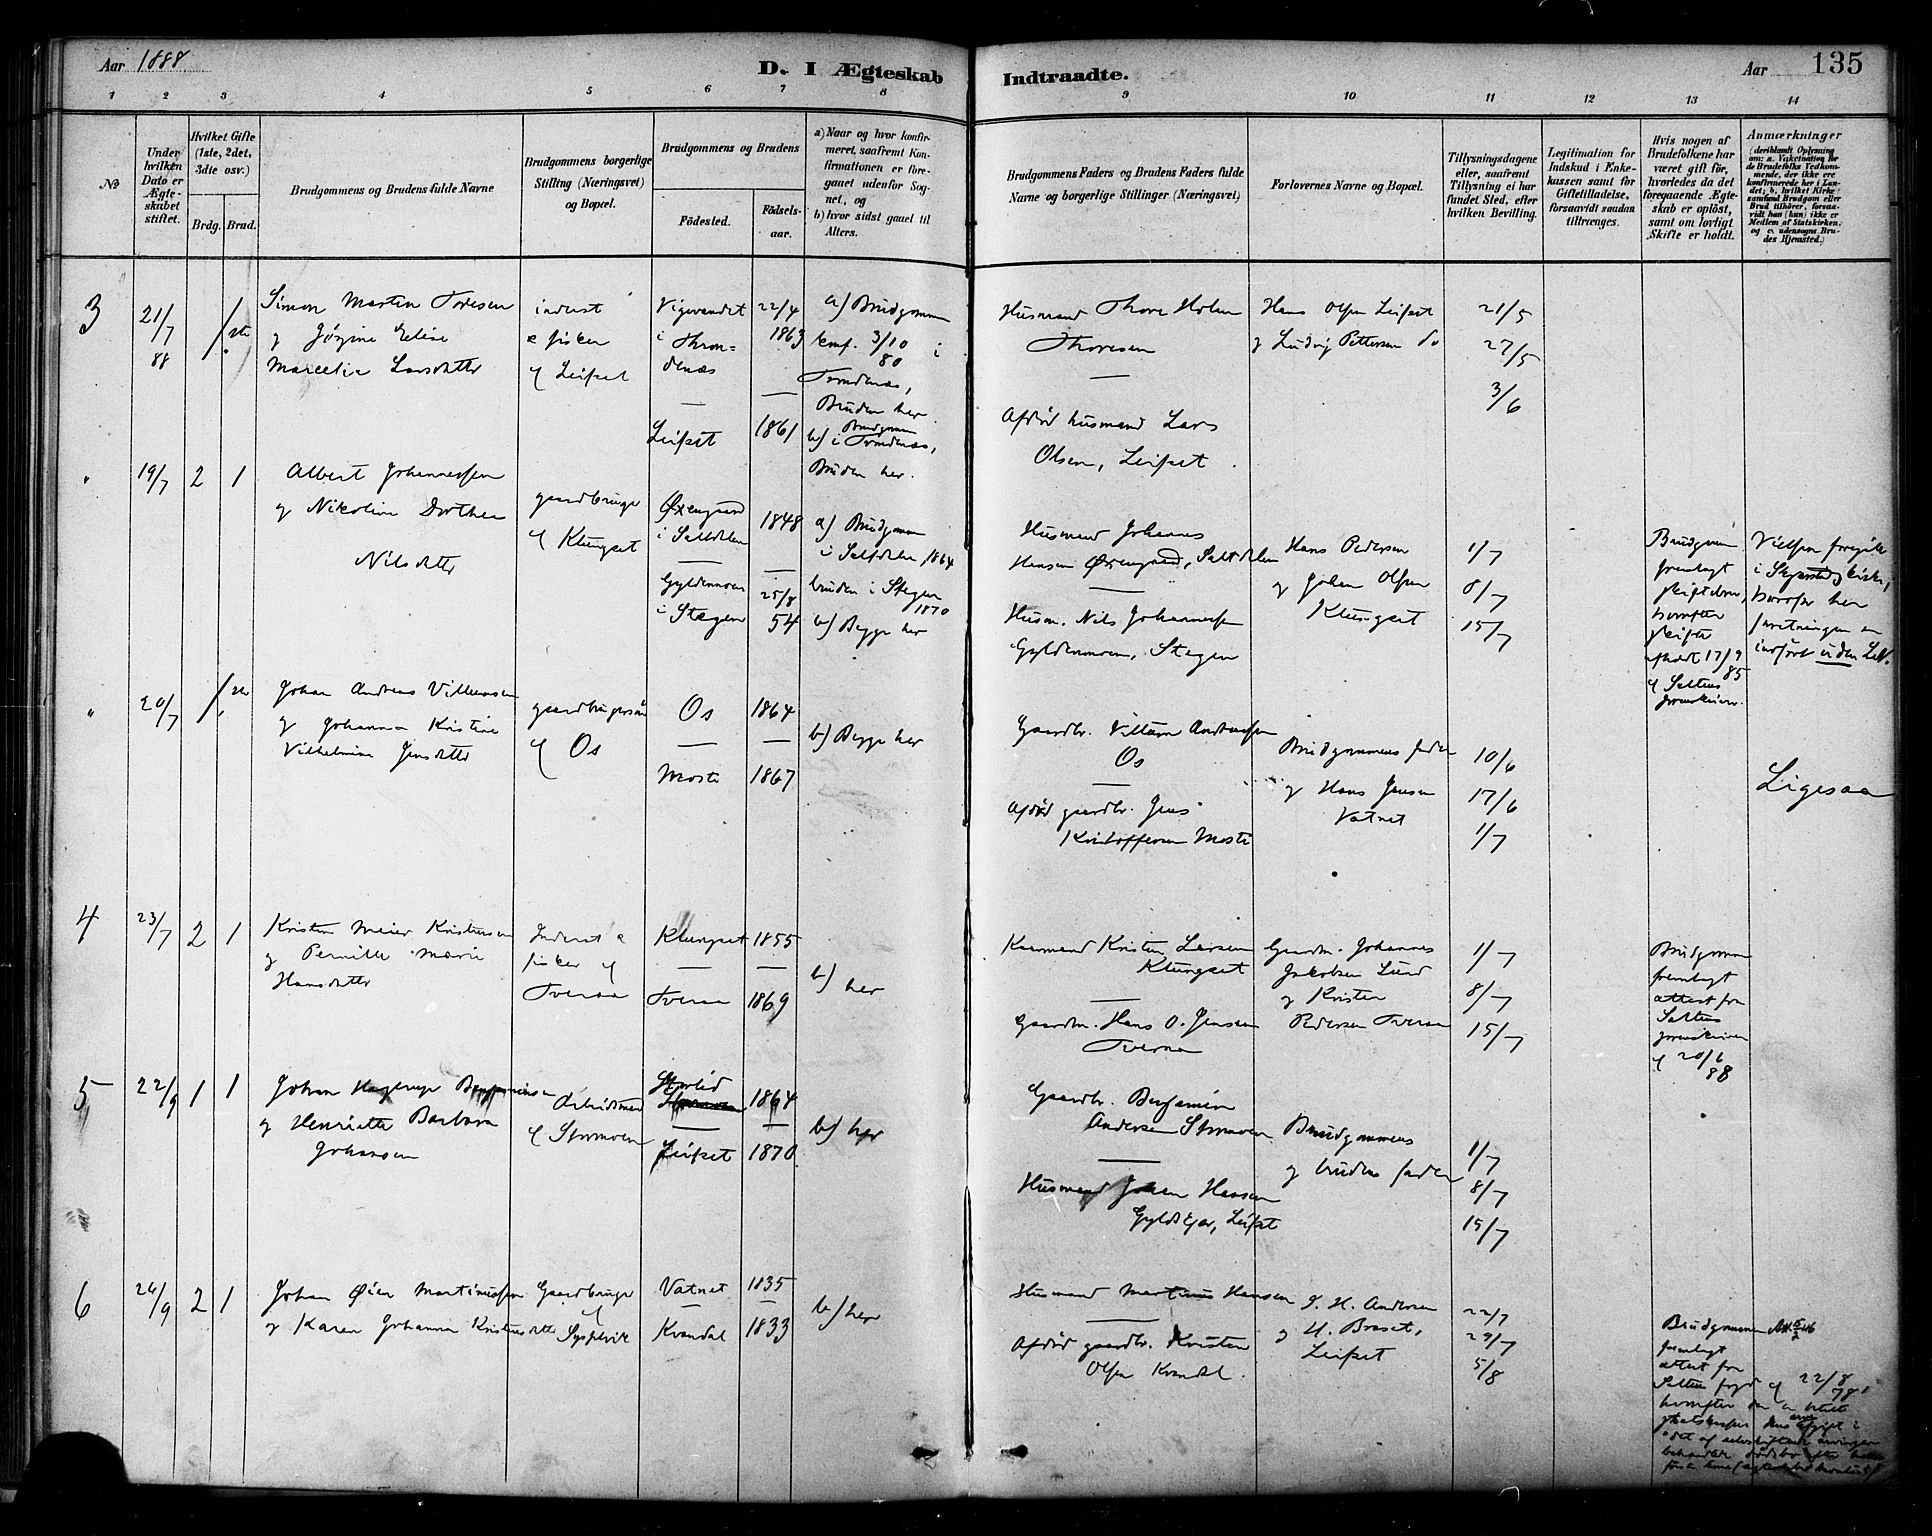 Aar 1888.
D. I Ægteskab
Indtraadte.
Aar
135
1 2 3 4 5 6 7 8 9 10 11 12 13 14
No
Under hvilken Dato er Ægteskabet stiftet.
Hvilket Gifte (1ste, 2det, 3die osv.)
Brdg. Brud.
Brudgommens og Brudens fulde Navne
Brudgommens borgerlige Stilling (Næringsvei) og Bopæl.
Brudgommens og Brudens
Födested.
Födselsaar.
a) Naar og hvor konfirmeret, saafremt Konfirmationen er foregaaet udenfor Sognet, og
b) hvor sidst gaaet til Alters.
Brudgommens Faders og Brudens Faders fulde Navne og borgerlige Stillinger (Næringsvei)
Forlovernes Navne og Bopæl.
Tillysningsdagene eller, saafremt Tillysning ei har fundet Sted, efter hvilken Bevilling.
Legitimation for Indskud i Enkekassen samt for Giftetilladelse, forsaavidt saadan tiltrænges.
Hvis nogen af Brudefolkene har været gift før, hvorledes da det foregaaende Ægteskab er oplöst, samt om lovligt Skifte er holdt.
Anmærkninger (deriblandt Oplysning om: a. Vakcination for de Brudefolks Vedkommende, der ikke ere konfirmerede her i Landet; b. hvilket Kirkesamfund Brudgom eller Brud tilhörer, forsaavidt han (hun) ikke er Medlem af Statskirken, og c. udensogns Brudes Hjemsted.)
3
21/7 88
1ste
Simon Martin Toresen
og Jørgine Elise
Marcelie Larsdatter
inderst
& fisker
Leifset
Vigevandet
i Thron-
denæs
—
Leifset
22/4
1863
—
1861
a) Brudgommen
konf. 3/10 80 i
Trondenæs,
Bruden her
b) Brudgommen
i Trondenæs,
Bruden her.
Husmand Thore Holm
Thoresen
—
Afdød husmand Lars
Olsen, Leifset.
Hans Olsen Leifset
og Ludvig Pettersen do
21/5
27/5
3/6
"
19/7
2 1
Albert Johannessen
og Nikoline Dorthea
Nilsdatter
gaardbruger
Klungset
Øxengaard
i Saltdalen
—
Gyldenmoen
i Stegen
1848
—
25/8
54
a) Brudgommen
i Saltdalen 1864
bruden i Stegen
1870
b) Begge her
Husmand Johannes
Hansen Øxengaard, Saltdalen
—
Husm. Nils Johannessen
Gyldenmoen, Stegen
Hans Pedersen
og Johan Olsen
Klungset
1/7
8/7
15/7
Brudgommen
fremlagt
skiftebrev,
hvorefter
skifte
afholdt 17/9 85
Saltens
Vielsen foregik
i Skjerstad kirke,
hvorfor her
forretningen er
indført uden No.
"
20/7
1ste
Johan Andreas Villumsen
og Johanna Kristine
Vilhelmine Jensdatter
gaardbrugersøn
Os
Os
—
Moste
1864
—
1867
b) Begge her
Gaardbr. Villum Andreassen
Os
—
Afdød gaardbr. Jens
Kristoffersen Moste
Brudgommens fader
og Hans Jensen
Vatnet
10/6
17/6
1/7
Ligesaa
4
23/7
2 1
Kristen Meier Kristensen
og Pernille Marie
Hansdatter
Inderst &
fisker
Tveraa
Klungset
—
Tveraa
1855
—
1869
b) her
Kaarmand Kristen Larsen
Klungset
—
Gaardbr. Hans O. Jensen
Tveraa
Gaardm. Johannes
Jakobsen Lund
og Kristen
Pedersen Tveraa
1/7
8/7
15/7
Brudgommen
fremlagt
attest fra
Saltens
20/6
88
5
22/9
1 1
Johan Hagerup Benjaminsen
og Henriette Barbara
Johansen
Arbeidsmand
Stormoen
Storlid
—
Leifset
1864
—
1870
b) her
Gaardbr. Benjamin
Andersen Stormoen
—
Husmand Johan Hansen
Leifset
Brudgommens
og brudens fader
1/7
8/7
15/7
6
26/9
2 1
Johan Øien Martinussen
og Karen Johanna Kristensdatter
Gaardbruger
Vatnet
—
Kvandal
1835
—
1833
b) her
Husmand Martinus Hansen
Afdød gaardbr. Kristen
Olsen Kvandal.
H. Andersen
og H. Braset,
Leifset
22/7
29/7
5/8
Brudgommen
fremlagt
attest fra
Saltens fogd 22/8 78
hvorefter